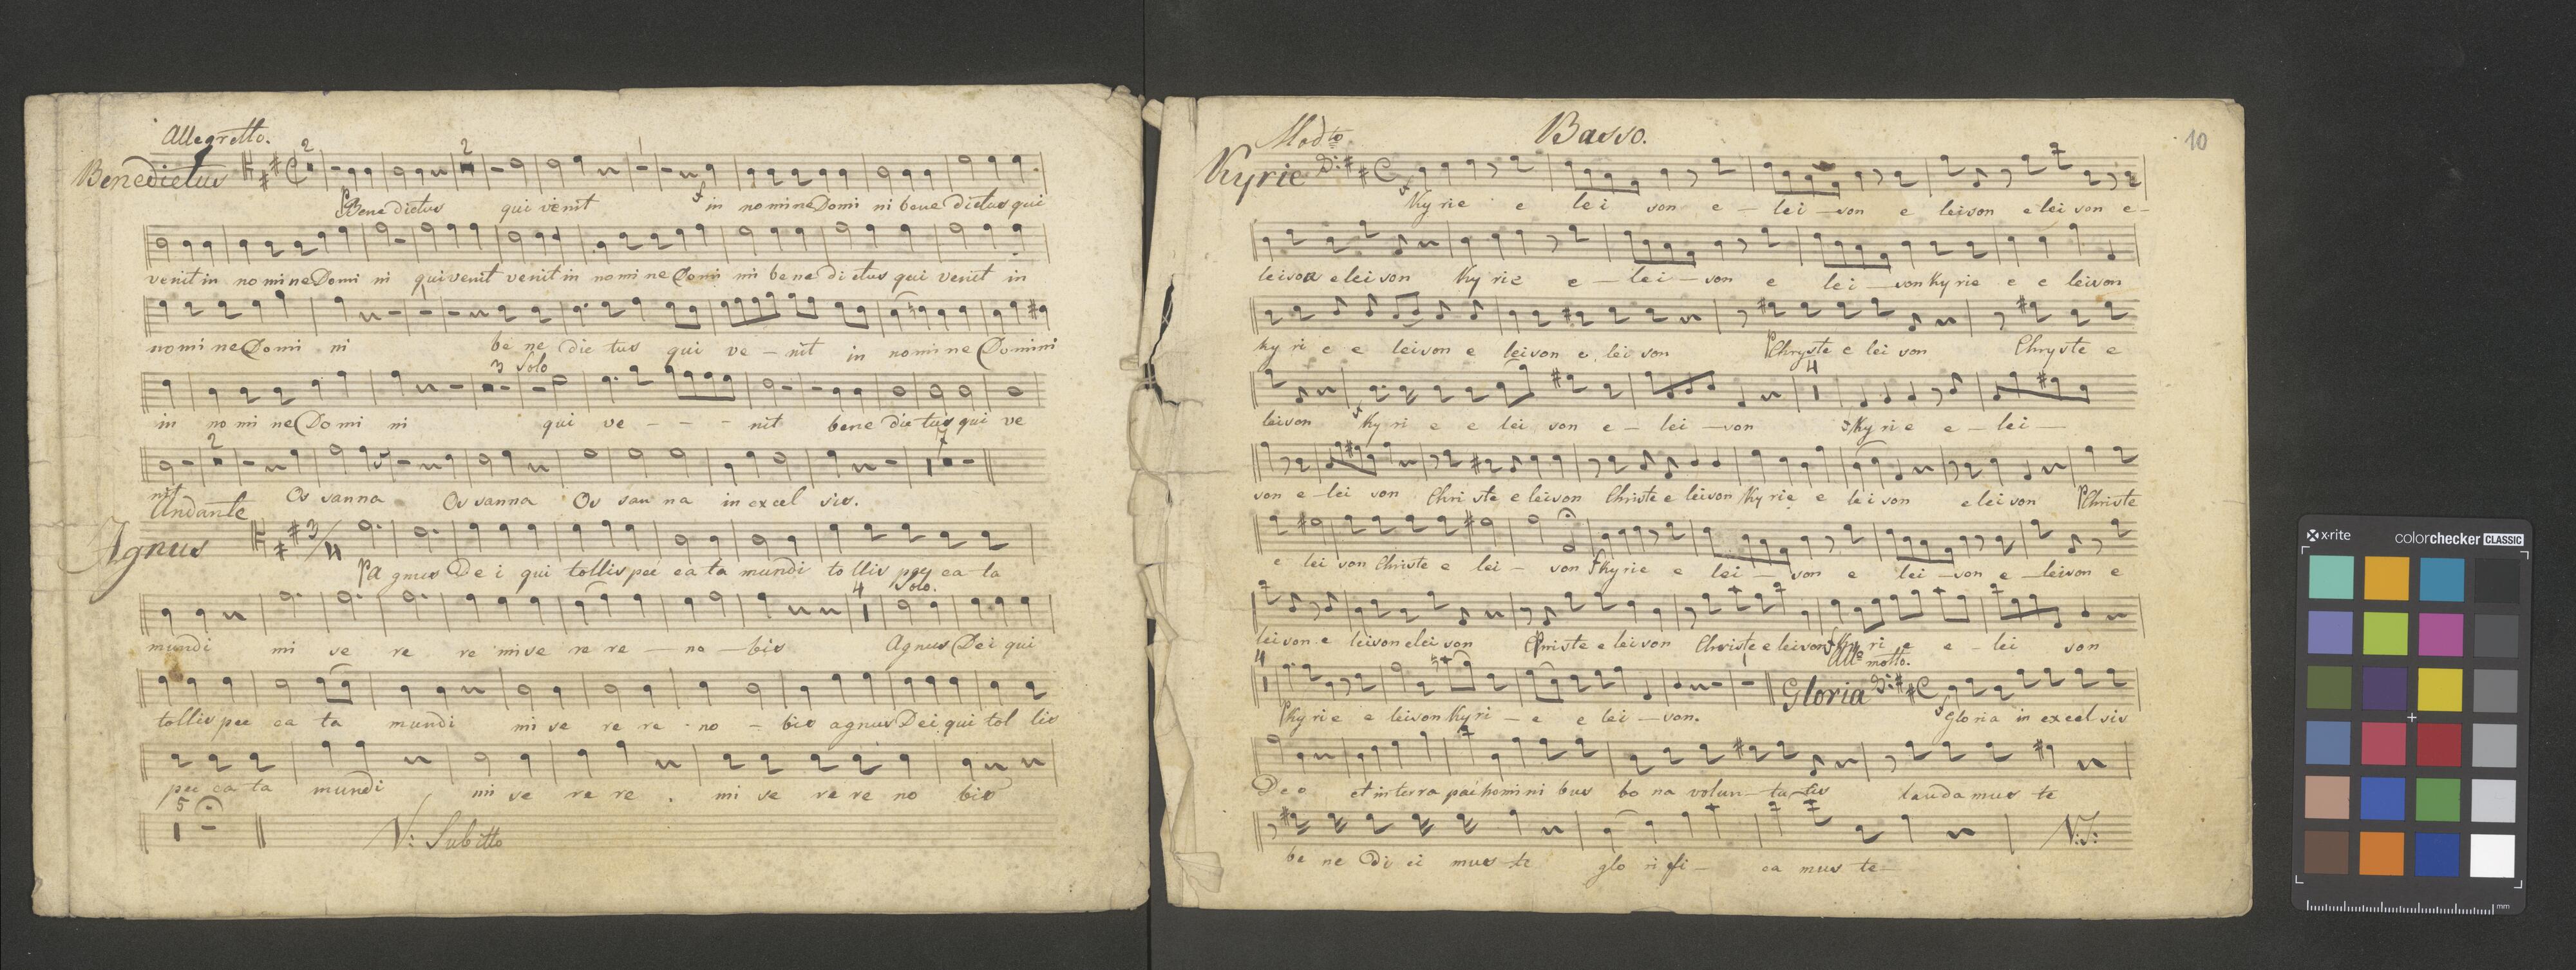 Allegretto.
2 2
Benedictus
Benedictus qui venit in nomine Domi ni bene dictus qui
venit in nomine Domi ni qui venit venit in nomine Domi ni bene dictus qui venit in
nomine Domi ni be ne dic tus qui ve - nit in nomine Domini
3 Solo
in nomine Domi ni qui ve - - - nit bene dictus qui ve
2
nit Os sanna Os sanna Os san na in excel sis.
Andante
Agnus
3/4
p A gnus De i qui tollis pec ca ta mundi to llis pec ca ta
4 Solo.
mundi mi se re re mise re re - no - bis Agnus Dei qui
tollis pec ca ta mundi mi se re re - no - bis agnus Dei qui tol lis
pec ca ta mundi mi se re re . mi se re re no bis
5
V: Subitto
Basso. 10
Modto
Kyrie
f Ky rie e lei son e - lei - son e leison elei son e -
leison elei son Ky rie e - lei - son e lei - son Ky rie e e leison
ky ri e e leison e leison e lei son p Chryste e lei son Chryste e
4
leison f Ky ri e e lei son e - lei - son Ky ri e e - lei -
son e - lei son Chri ste e leison Christe e leison Ky rie e lei son elei son p Christe
e lei son Christe e lei - son f kyrie e lei - son e lei - son e - leison e
leison e leison elei son Christe e leison Christe e leison f Ky ri e e - lei son
4 Allo molto.
Gloria
Ky ri e e leison Kyri - e e lei - son. f Gloria in excel sis
Deo et in terra pax homini bus bo na volun - ta - tis lauda mus te
be ne di ci mus te glo ri fi - ca mus te -
V:S:
x-rite colorchecker CLASSIC
mm